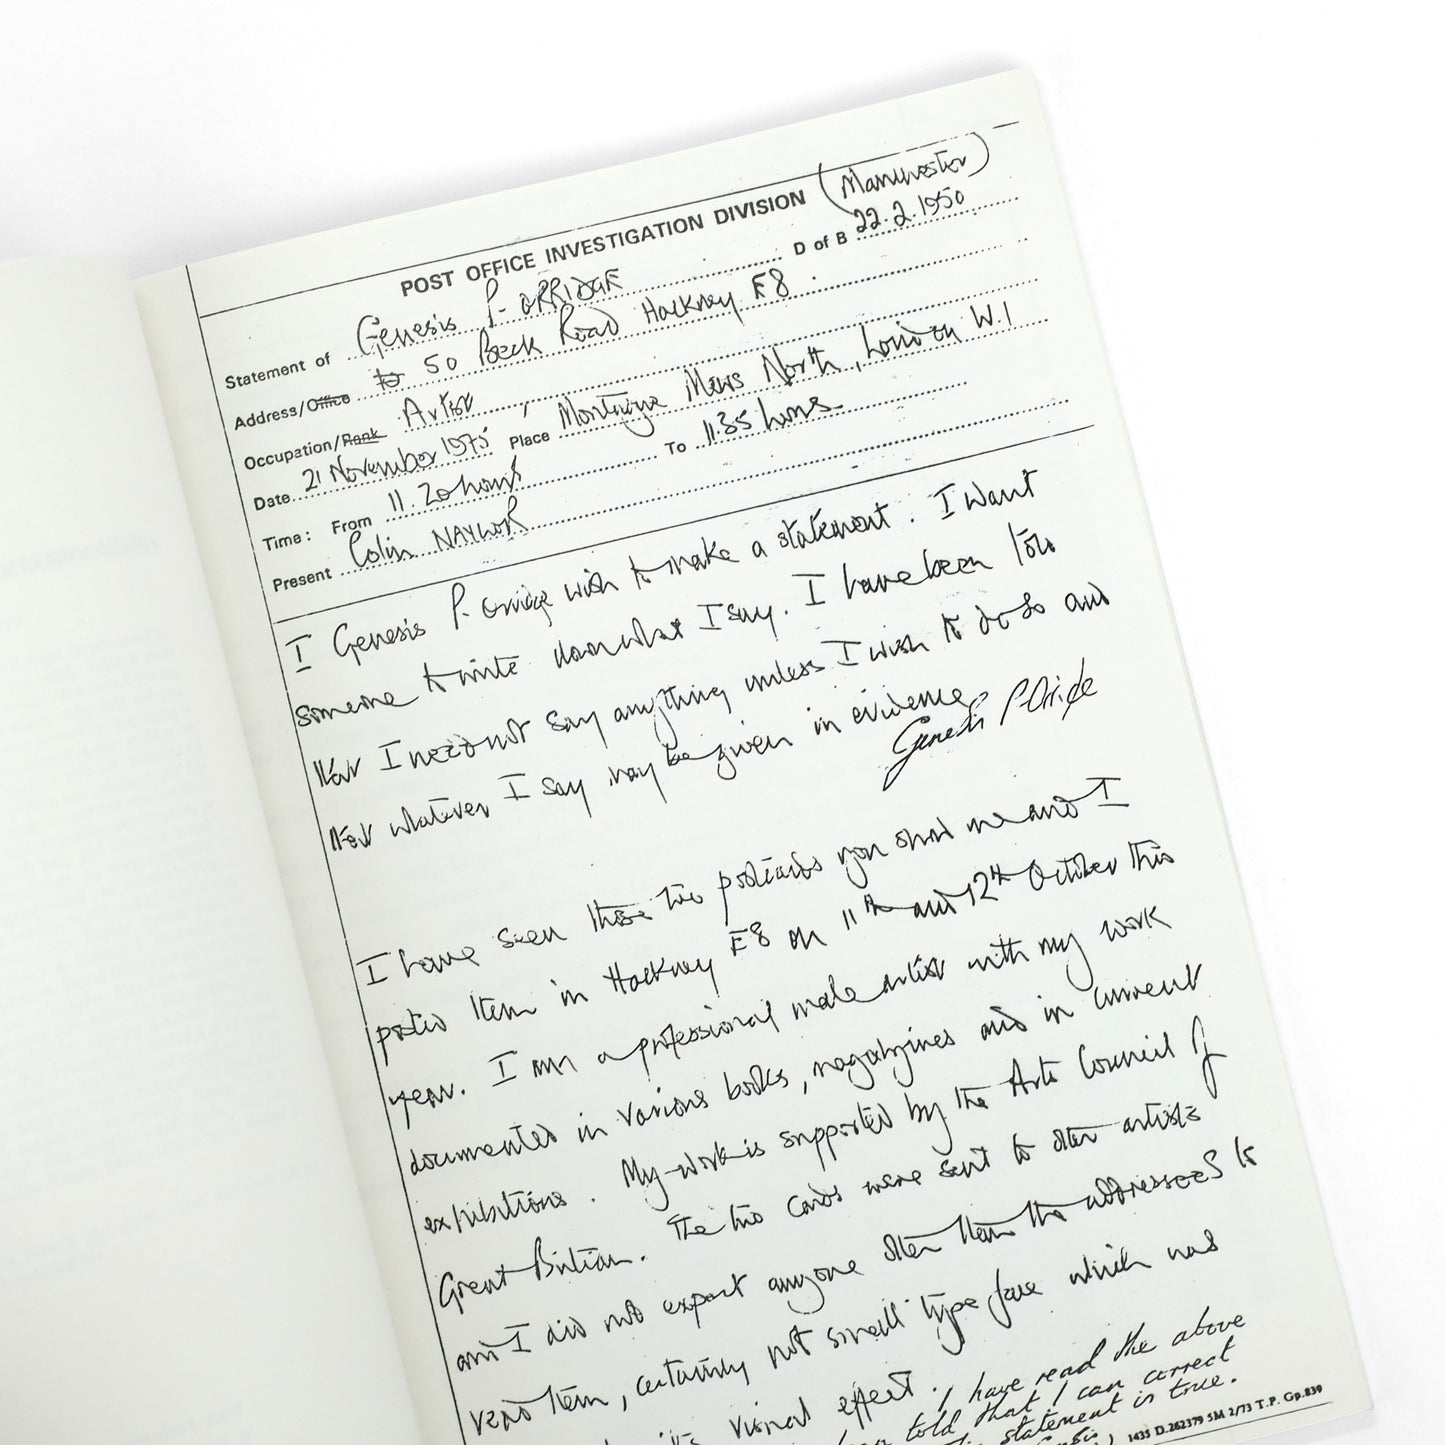 POST OFFICE INVESTIGATION DIVISION (Manchester)
Statement of Genesis P-ORRIDGE D of B 22.2.1950
Address/Office to 50 Beck Road Hackney E8.
Occupation/Rank Artist
Date 21 November 1975 Place Montague Mews North, London W.1
Time: From 11.20 hours To 11.35 hours.
Present Colin NAYLOR
I Genesis P. Orridge wish to make a statement. I want
someone to write down what I say. I have been told
that I need not say anything unless I wish to do so and
that whatever I say may be given in evidence.
Genesis P-Orridge
I have seen those two postcards you showed me and I
posted them in Hackney E8 on 11th and 12th October this
year. I am a professional male artist with my work
documented in various books, magazines and in current
exhibitions. My work is supported by the Arts Council of
Great Britian. The two cards were sent to other artists
and I did not expect anyone other than the addressees to
read them, certainly not small type face which was
its visual effect. I have read the above
told that I can correct
statement is true.
1435 D.262379 5M 2/73 T.P. Gp.839